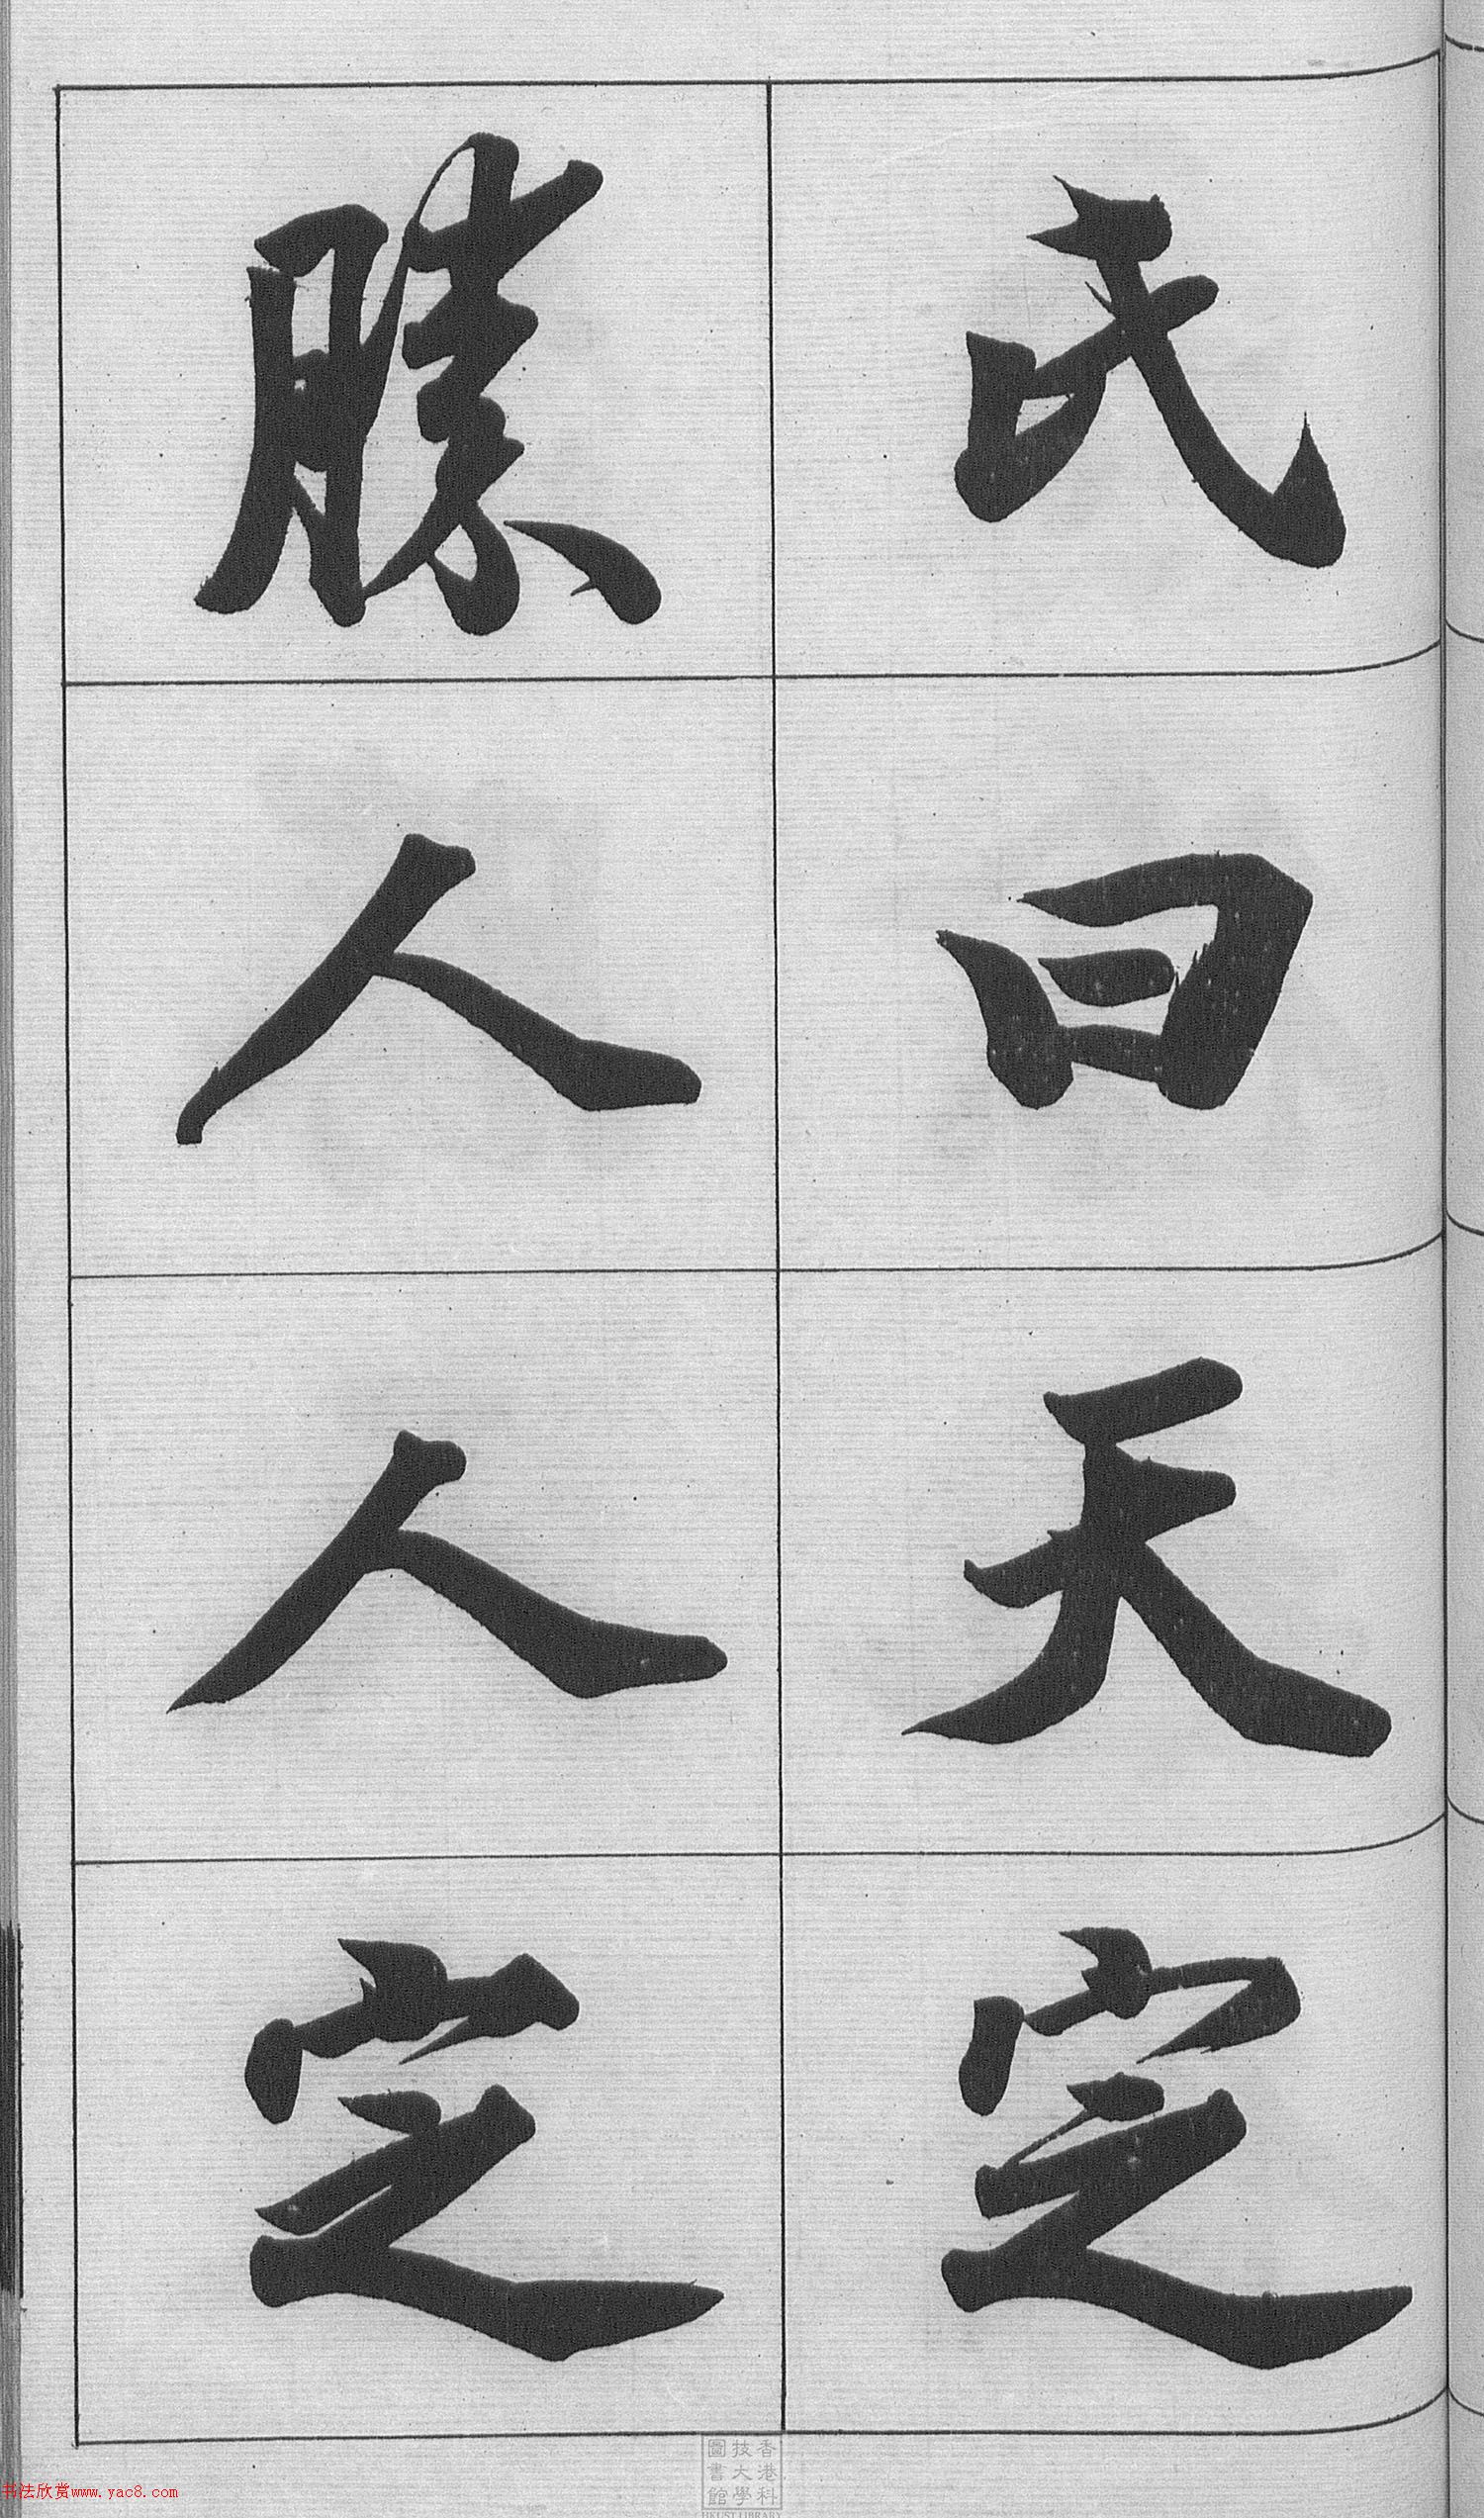 氏曰天定
勝人人定
香港科
技大學
圖書館
HKUST LIBRARY
书法欣赏www.yac8.com